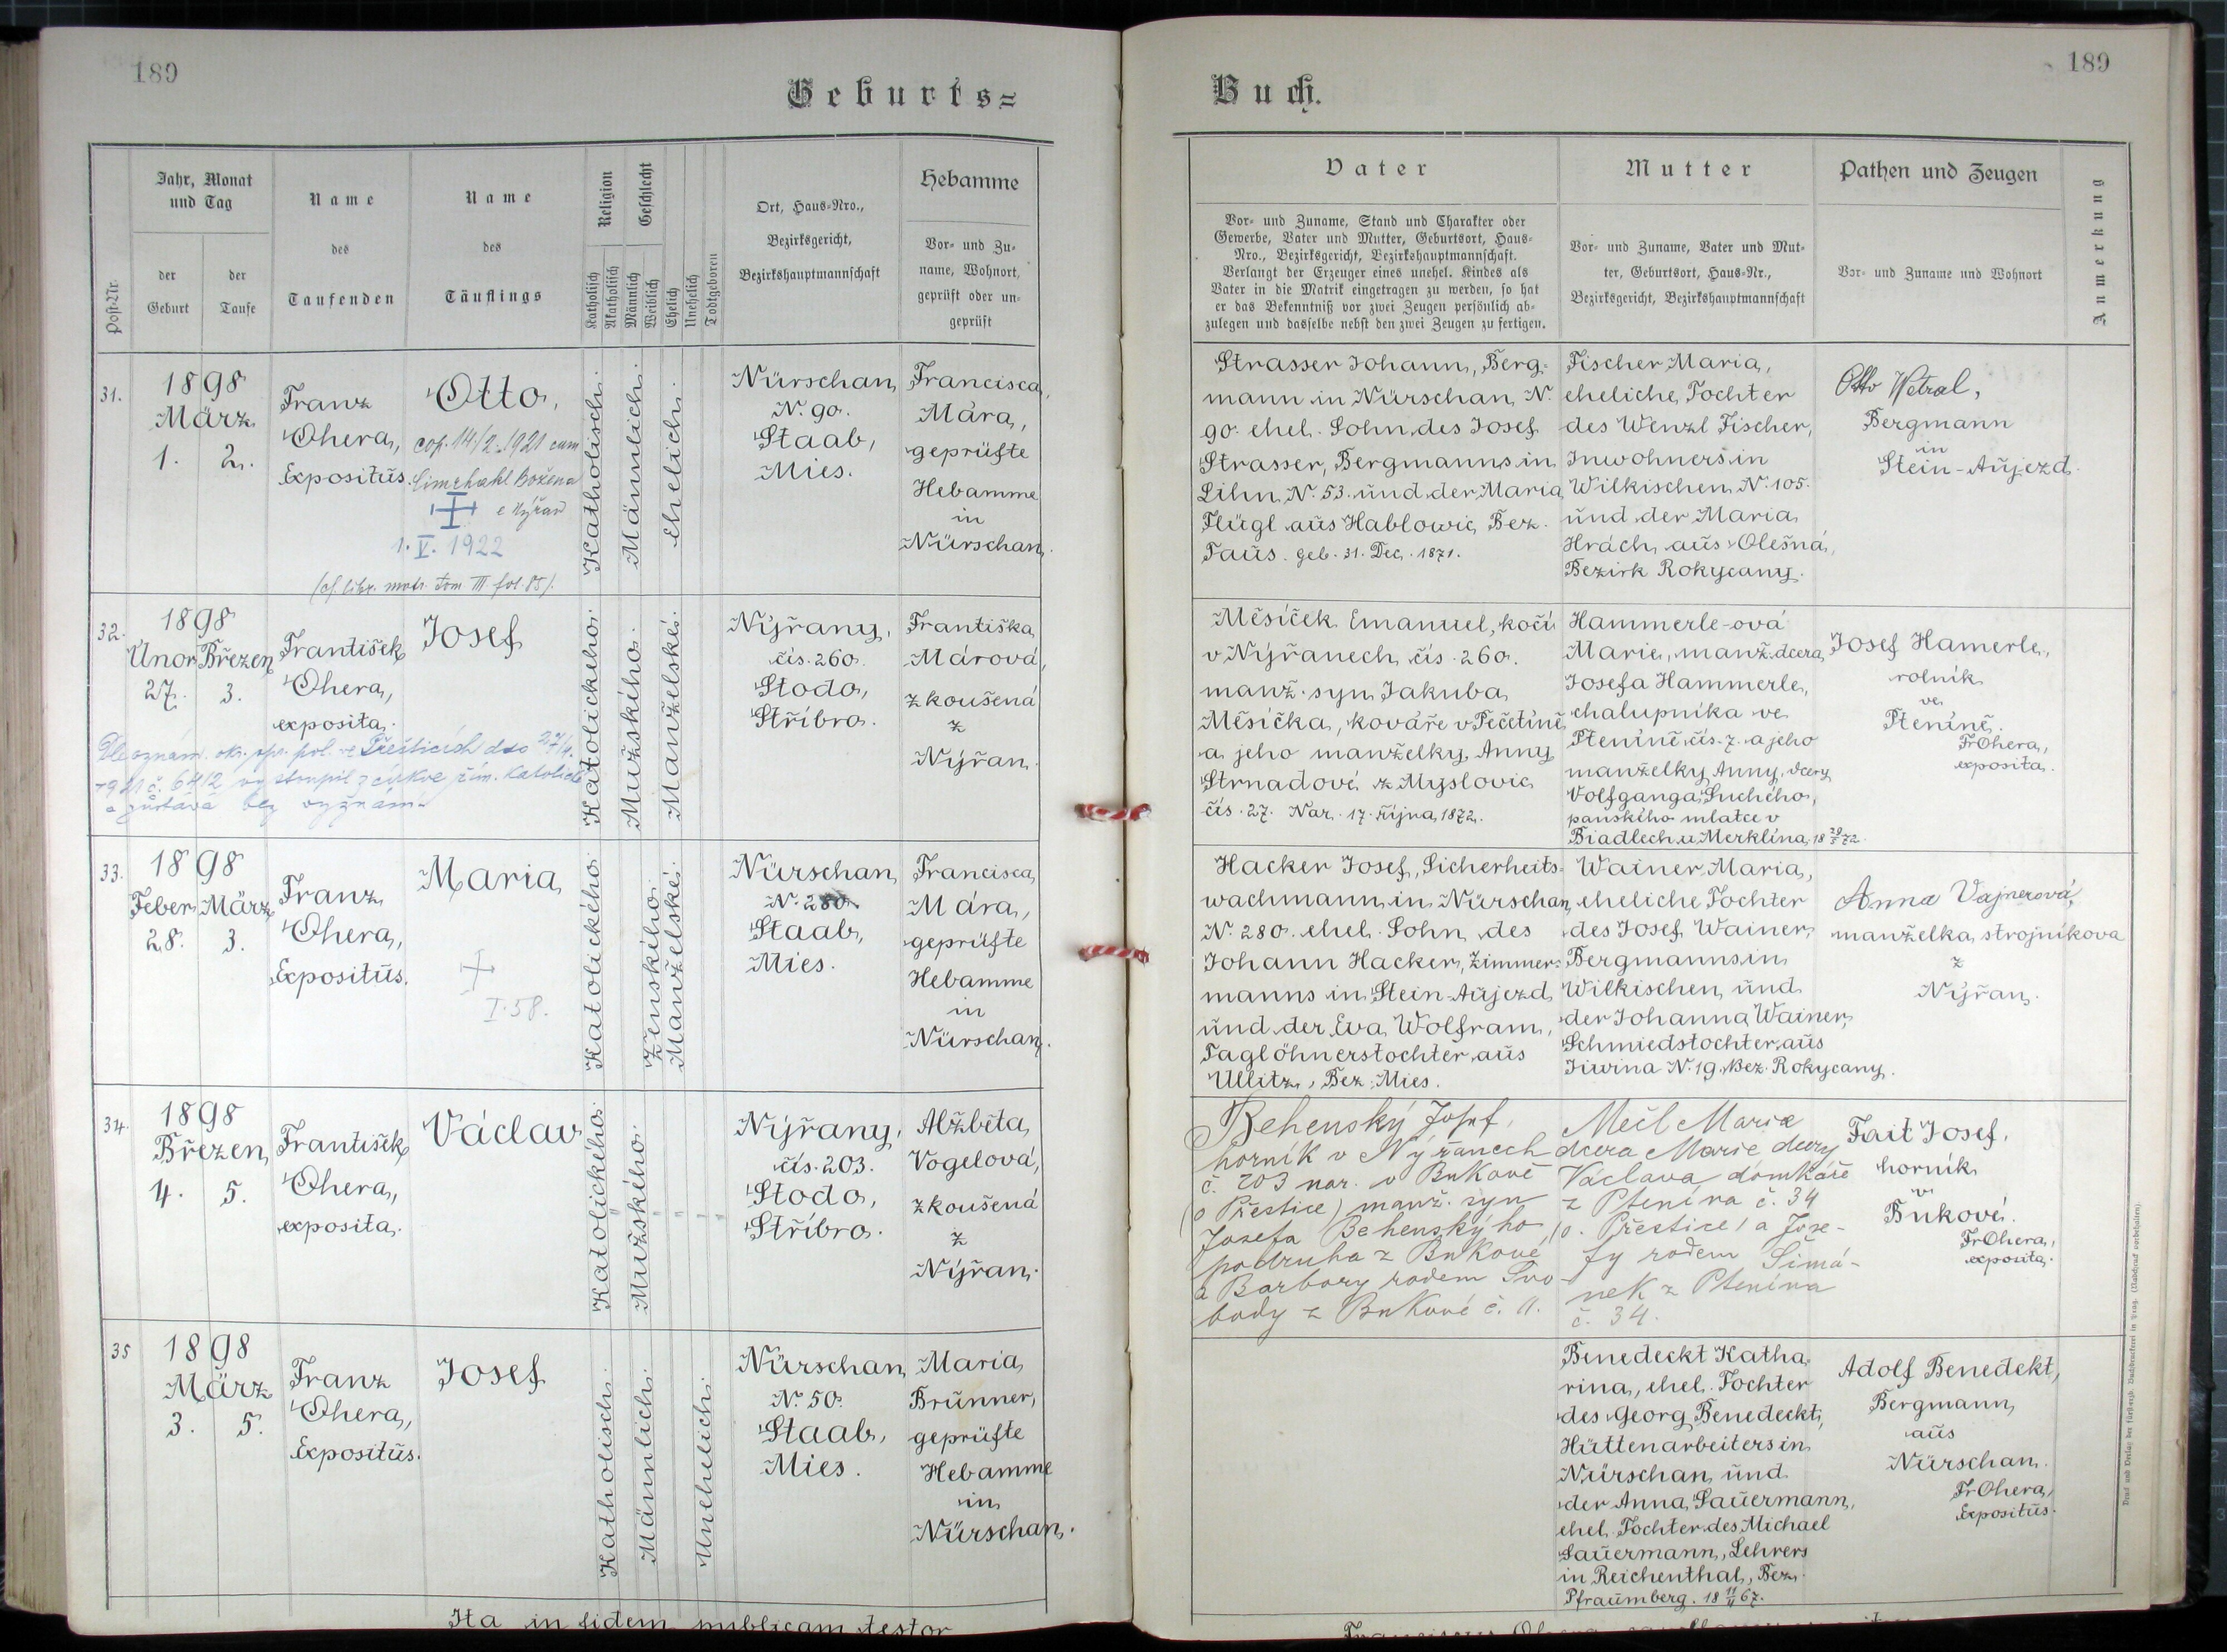 189
Geburts=
Jahr, Monat
und Tag
der
Geburt
der
Taufe
Post-Nr.
Name
des
Taufenden
Name
des
Täuflings
Religion
Katholisch
Akatholisch
Geschlecht
Männlich
Weiblich
Ehelich
Unehelich
Todtgeboren
Ort, Haus=Nro.,
Bezirksgericht,
Bezirkshauptmannschaft
Hebamme
Vor= und Zu=
name, Wohnort,
geprüft oder un=
geprüft
31.
1898
März
1. 2.
Franz
Ohera,
Expositus.
Otto,
cop. 14/2. 1921 cum
Božena
e Nýřan
1. V. 1922
(cf. libr. matr. tom III fol. 85).
Katholisch.
Männlich.
Ehelich.
Nürschan
N. 90.
Staab,
Mies.
Francisca
Mára,
geprüfte
Hebamme
in
Nürschan.
32.
1898
Únor Březen
27. 3.
František
Ohera,
exposita.
Josef
Dle oznám. ok. spr. pol. v Přešticích dto 27/4.
1921 č. 6412 vystoupil z církve řím. katolické
a zůstává bez vyznání
Katolického.
Mužského.
Manželské.
Nýřany,
čís. 260.
Stodo,
Stříbro.
Františka
Márová,
zkoušená
z
Nýřan.
33.
1898
Feber März
28. 3.
Franz
Ohera,
Expositus.
Maria
I. 58.
Katolického.
Ženského.
Manželské.
Nürschan
N. 280.
Staab,
Mies.
Francisca
Mára,
geprüfte
Hebamme
in
Nürschan.
34.
1898
Březen
4. 5.
František
Ohera,
exposita.
Václav
Katolického.
Mužského.
Nýřany,
čís. 203.
Stodo,
Stříbro.
Alžběta
Vogelová,
zkoušená
z
Nýřan.
35
1898
März
3. 5.
Franz
Ohera,
Expositus.
Josef
Katholisch.
Männlich.
Unehelich.
Nürschan
N. 50.
Staab,
Mies.
Maria
Brunner,
geprüfte
Hebamme
in
Nürschan.
Ita in fidem publicam testor
189
Buch.
Vater
Vor= und Zuname, Stand und Charakter oder
Gewerbe, Vater und Mutter, Geburtsort, Haus=
Nro., Bezirksgericht, Bezirkshauptmannschaft.
Verlangt der Erzeuger eines unehel. Kindes als
Vater in die Matrik eingetragen zu werden, so hat
er das Bekenntniß vor zwei Zeugen persönlich ab=
zulegen und dasselbe nebst den zwei Zeugen zu fertigen.
Mutter
Vor= und Zuname, Vater und Mut=
ter, Geburtsort, Haus=Nr.,
Bezirksgericht, Bezirkshauptmannschaft
Pathen und Zeugen
Vor= und Zuname und Wohnort
Anmerkung
Strasser Johann, Berg=
mann in Nürschan N.
90. ehel. Sohn des Josef
Strasser, Bergmanns in
Lihn N. 53. und der Maria
Flügl aus Hablowic Bez.
Taus. geb. 31. Dec. 1871.
Fischer Maria,
eheliche Tochter
des Wenzl Fischer,
Inwohners in
Wilkischen N. 105.
und der Maria
Hrách aus Olešná,
Bezirk Rokycany.
Otto Wetral,
Bergmann
in
Stein-Aujezd.
Měsíček Emanuel, kočí
v Nýřanech čís. 260.
manž. syn Jakuba
Měsíčka, kováře v Pečetíně
a jeho manželky Anny
Strnadové z Myslovic
čís. 27. Nar. 17. října 1872.
Hammerle-ová
Marie, manž. dcera
Josefa Hammerle,
chalupníka ve
Pteníně čís. 7. a jeho
manželky Anny, dcery
Volfganga Suchého,
panského mlatce v
Biadlech u Merklína 18 29/5 72.
Josef Hamerle,
rolník
ve
Pteníně.
FrOhera,
exposita.
Hacker Josef, Sicherheits=
wachmann in Nürschan
N. 280. ehel. Sohn des
Johann Hacker, Zimmer=
manns in Stein-Aujezd
und der Eva Wolfram,
Taglöhnerstochter aus
Ullitz, Bez. Mies.
Wainer Maria,
eheliche Tochter
des Josef Wainer
Bergmanns in
Wilkischen und
der Johanna Wainer,
Schmiedstochter aus
Jiwina N. 19. Bez. Rokycany.
Anna Vajnerová,
manželka strojníkova
z
Nýřan.
Behenský Josef,
horník v Nýřanech
č. 203 nar. v Bukové
(o Přestice) manž. syn
Josefa Behenského,
podruha z Bukové
a Barbory rodem Svo-
body z Bukové č. 11.
Mečl Marie
dcera Marie dcery
Václava domkáře
z Ptenína č. 34
(o. Přestice) a Jose-
fy rodem Šimá-
nek z Ptenína
č. 34.
Fait Josef,
horník
v
Bukové.
FrOhera,
exposita.
Benedeckt Katha
rina, ehel. Tochter
des Georg Benedeckt,
Hüttenarbeiters in
Nürschan und
der Anna Sauermann,
ehel. Tochter des Michael
Sauermann, Lehrers
in Reichenthal, Bez.
Pfraumberg. 18 11/11 67.
Adolf Benedekt,
Bergmann
aus
Nürschan.
FrOhera,
Expositus.